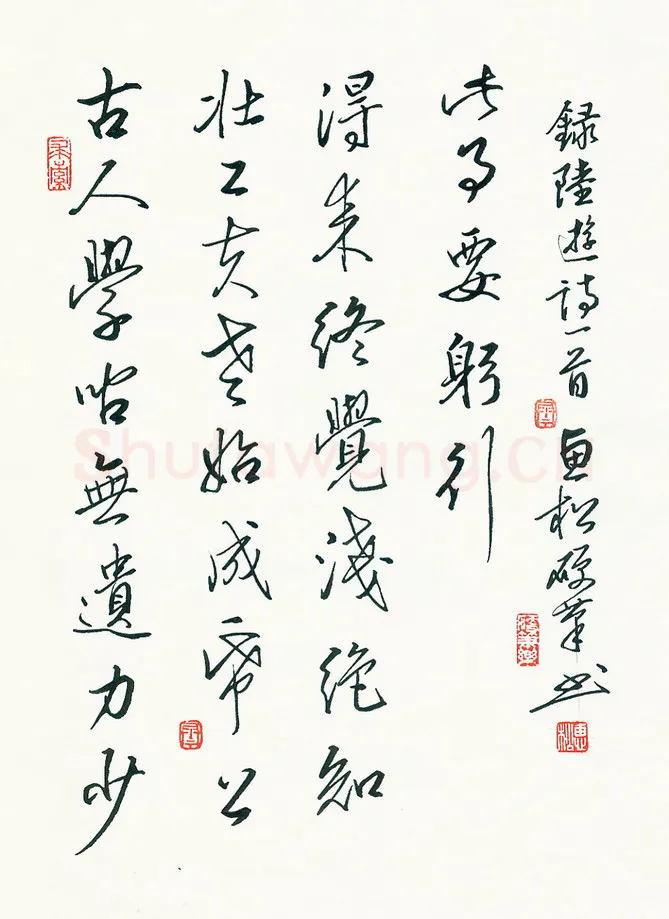 古人學問無遺力少
壯工夫老始成帋上
得来終覺淺絶知
此事要躬行
録陸遊詩一首 恵松硬筆书
Shufawang.cn